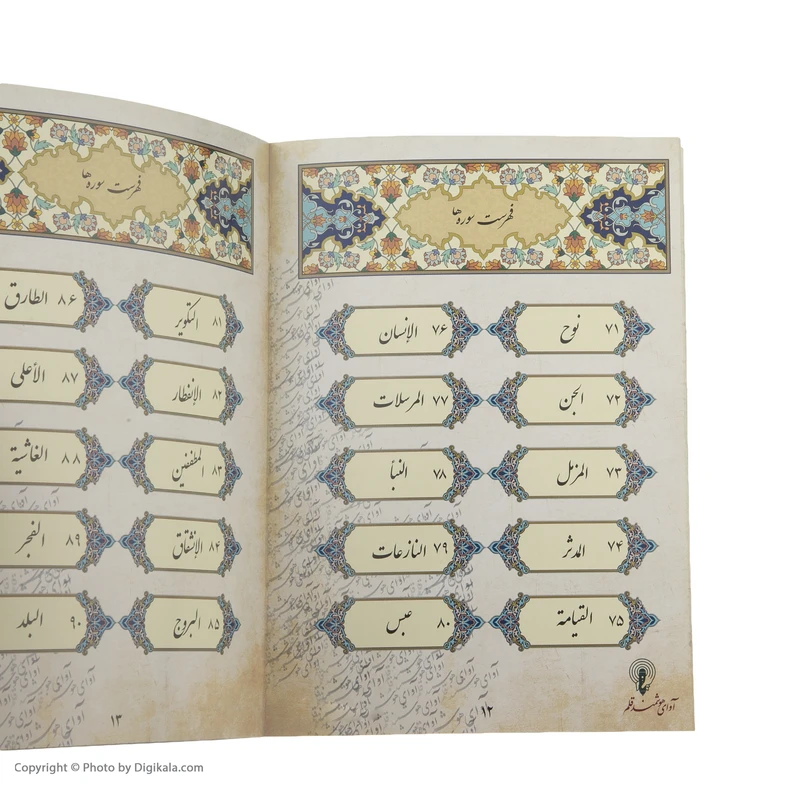 فهرست سوره‌ها
۷۱ نوح
۷۲ الجن
۷۳ المزمل
۷۴ المدثر
۷۵ القيامة
۷۶ الإنسان
۷۷ المرسلات
۷۸ النبأ
۷۹ النازعات
۸۰ عبس
آوای هوشمند قلم
۱۲
فهرست سوره‌ها
۸۱ التكوير
۸۲ الإنفطار
۸۳ المطففين
۸۴ الإنشقاق
۸۵ البروج
۸۶ الطارق
۸۷ الأعلى
۸۸ الغاشية
۸۹ الفجر
۹۰ البلد
۱۳
Copyright © Photo by Digikala.com